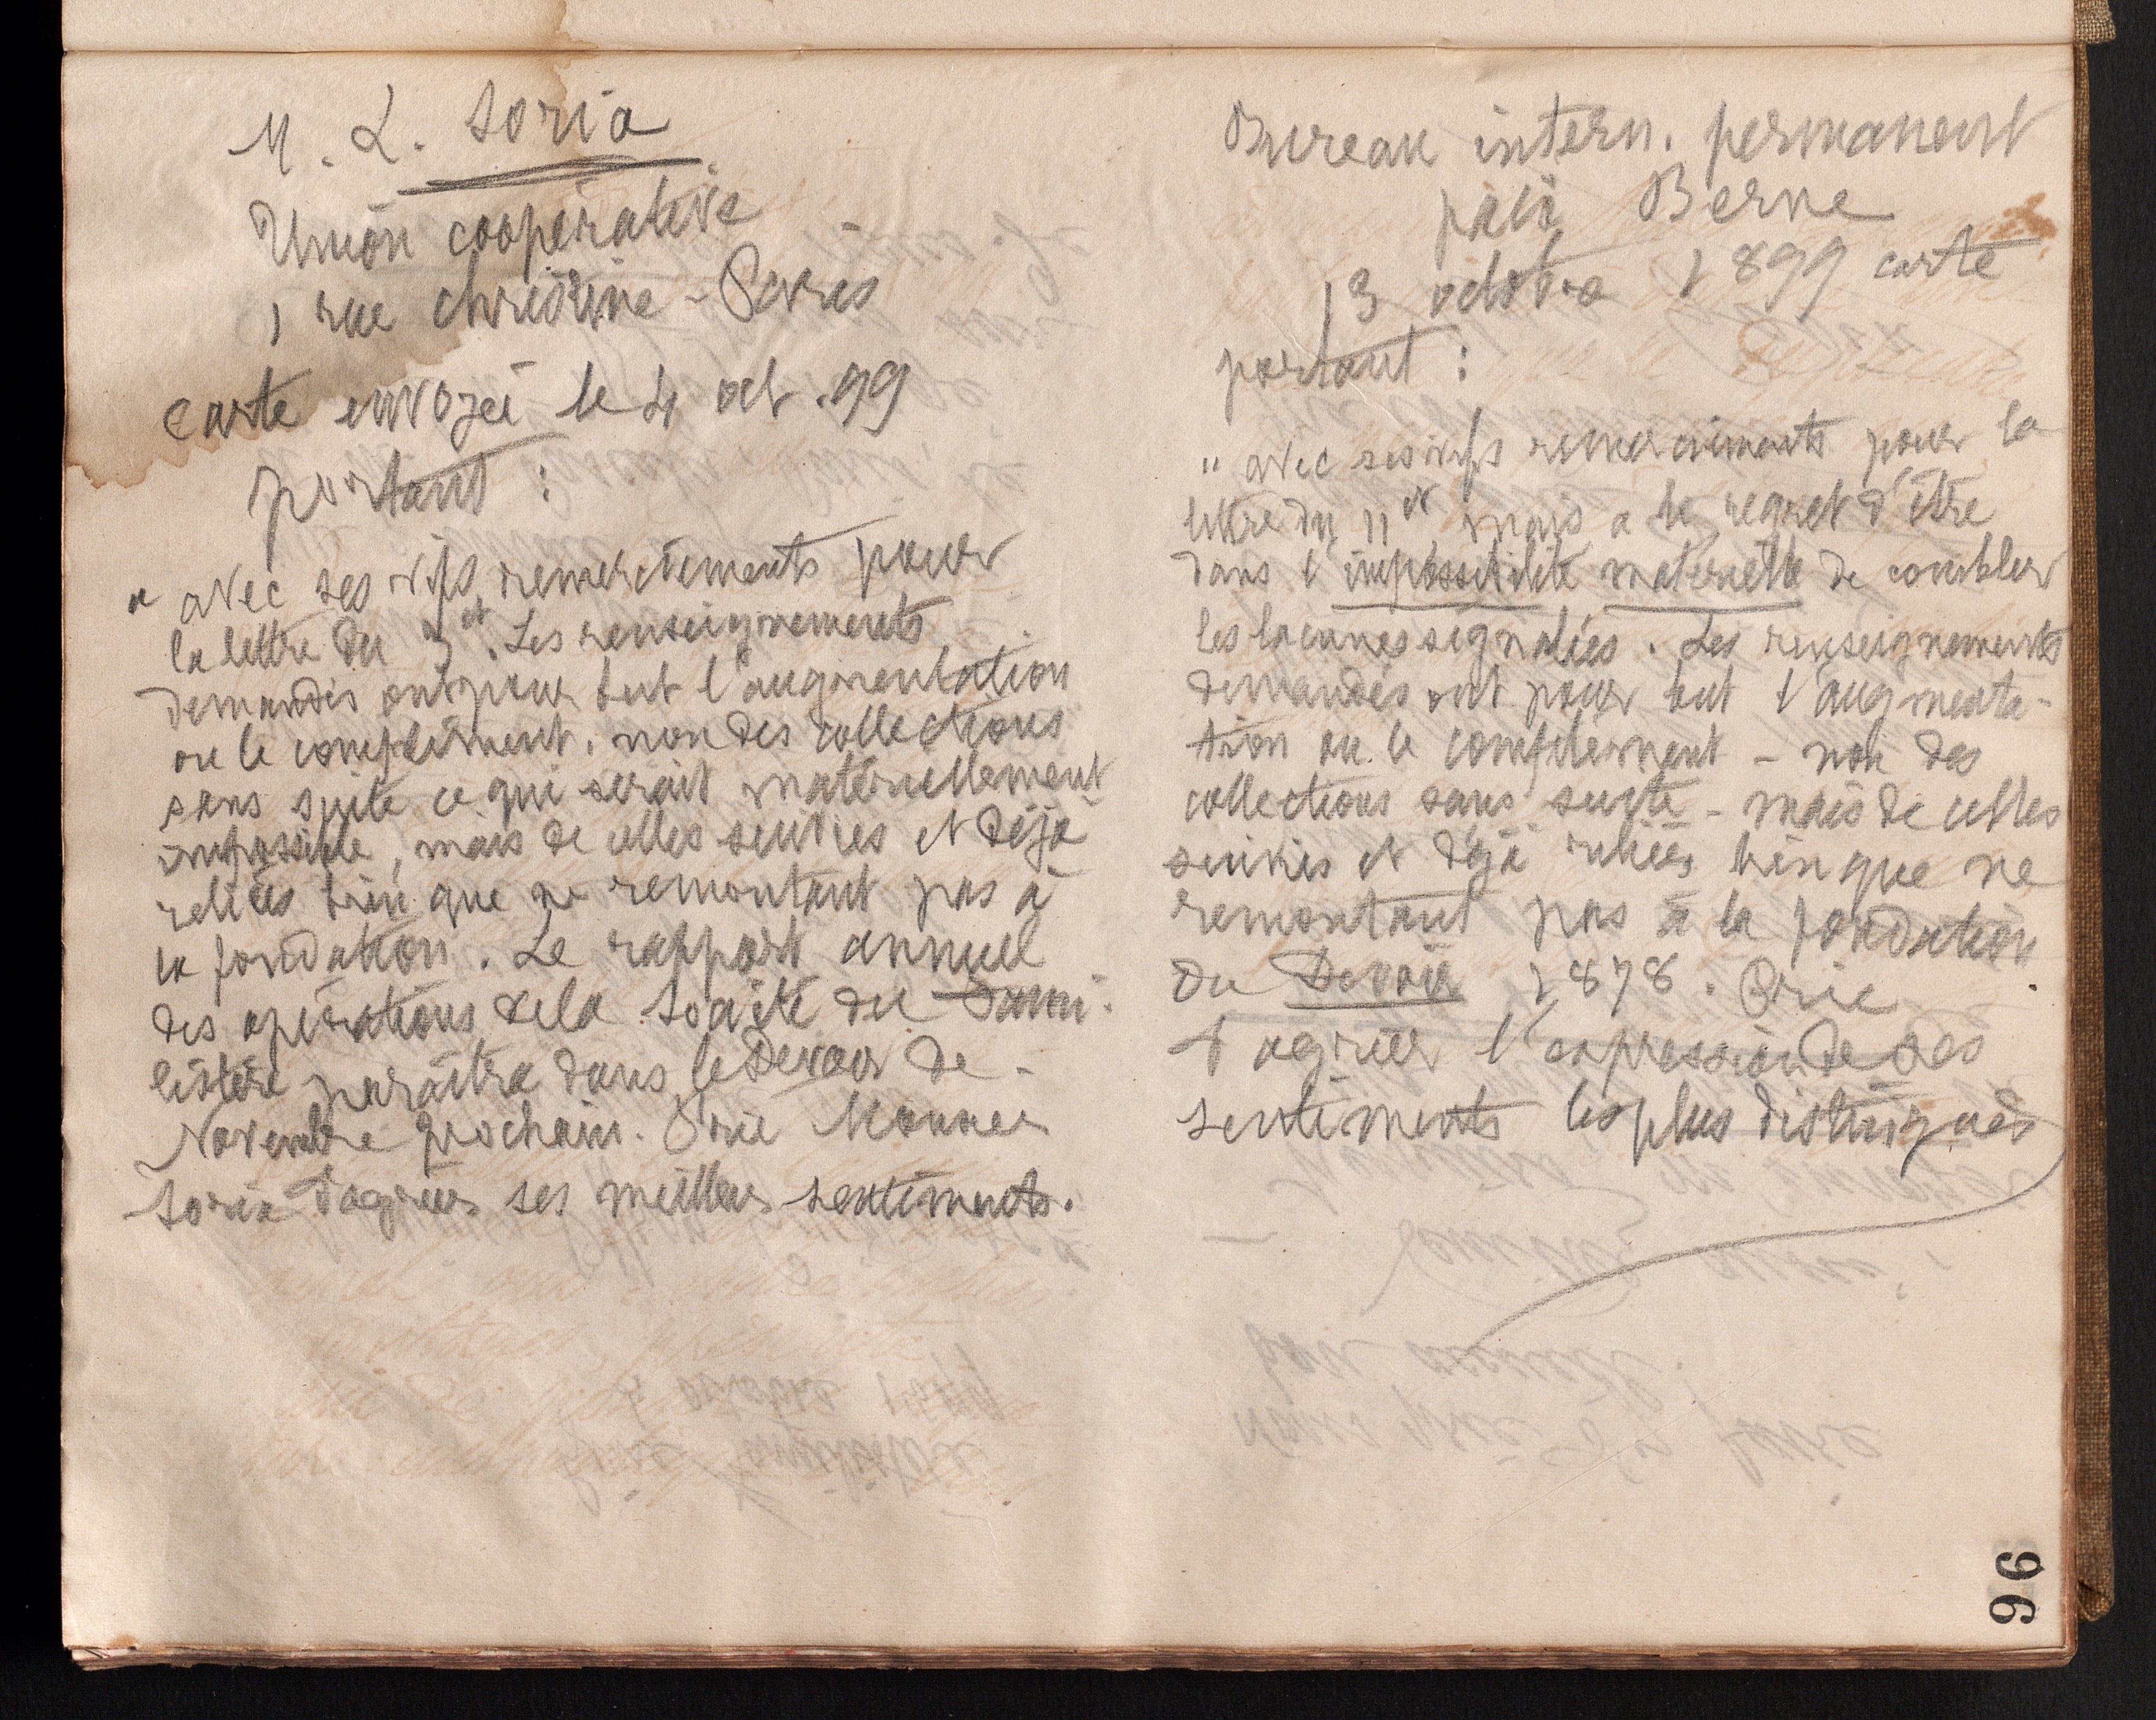 M. L. Soria
Union coopérative
1 rue Christine - Paris
Carte envoyée le 4 oct. 99
portant :
" avec ses vifs remerciements pour
la lettre du 3 ct. Les renseignements
demandés ont pour but l'augmentation
ou le complément, non des collections
sans suite ce qui serait matériellement
impossible, mais de celles suivies et déjà
reliées bien que ne remontant pas à
la fondation. Le rapport annuel
des opérations de la Société du Fami-
listère paraîtra dans le Devoir de
Novembre prochain. Prie Monsieur
Soria d'agréer ses meilleurs sentiments.
Bureau intern. permanent
paix Berne
13 octobre 1899 carte
portant :
" avec ses vifs remerciments pour la
lettre du 11 ct mais a le regret d'être
dans l'impossibilité matérielle de combler
les lacunes signalées. Les renseignements
demandés ont pour but l'augmenta-
tion ou le complément - non des
collections sans suite - mais de celles
suivies et déjà reliées bien que ne
remontant pas à la fondation
du Devoir 1878. Prie
d'agréer l'expression de ses
sentiments les plus distingués
96